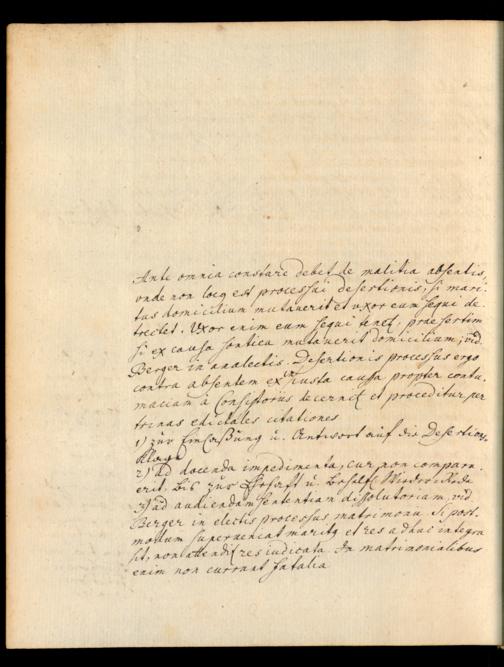 Ante omnia constare debet de malitia absentis,
unde non locg est processui desertionis, si mari-
tus domicilium mutaverit et uxor eum sequi de-
trectet. Uxor enim eum sequi tenet. praesertim
si ex causa sontica mutaverit domicilium, vid.
Berger in analectis. Desertionis processus ergo
contra absentem ex iniusta causa, propter contu-
maciam à Consistoriis decernit et proceditur per
trinas edictales citationes
1) zur Einlaßung u. Antwort auf die Desertions
Klage
2) ad docenda impedimenta, cur non compar-
erit. Bis zur u.
3) ad audiendam sententiam dissolutoriam, vid.
Berger in electis processus matrimonii. Si post-
modum superveniat maritg et res adhuc integra
sit, non attendit res iudicata. In matrimonialibus
enim non currant fatalia